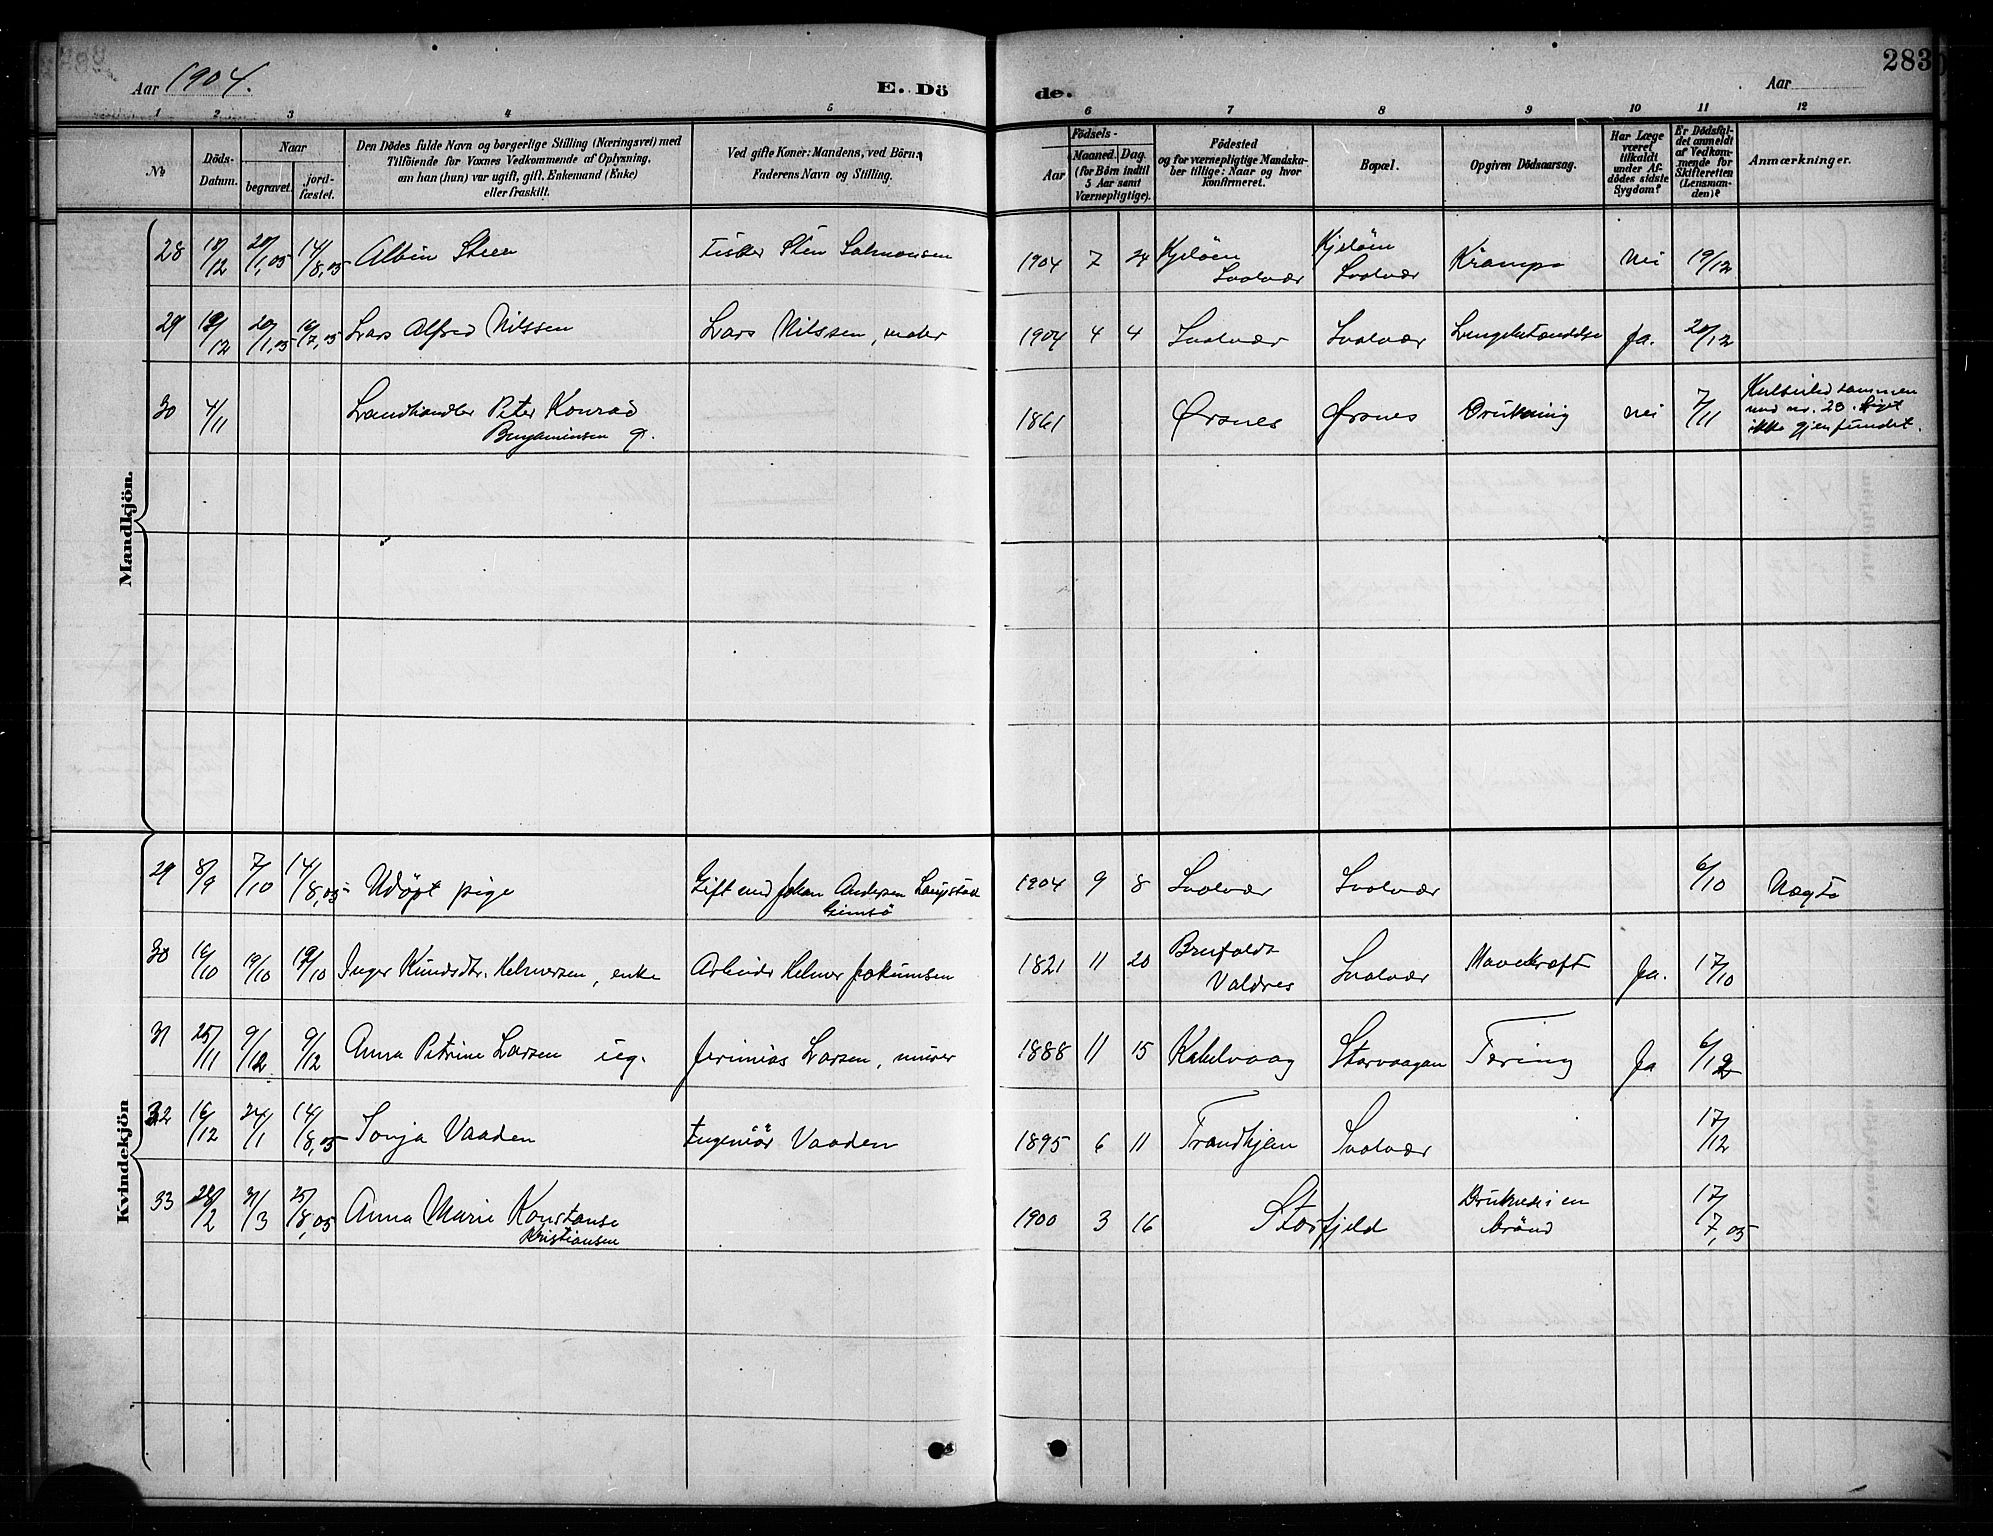 Aar 1904. E. Dö de. Aar 283
1 2 3 4 5 6 7 8 9 10 11 12
No
Döds-Datum.
Naar
begravet.
jord-fæstet.
Den Dödes fulde Navn og borgerlige Stilling (Næringsvei) med
Tilföiende for Voxnes Vedkommende af Oplysning,
om han (hun) var ugift, gift, Enkemand (Enke)
eller fraskilt.
Ved gifte Koner: Mandens, ved Börn:
Faderens Navn og Stilling.
Födsels-
Aar
Maaned. Dag.
(for Börn indtil
5 Aar samt
Værnepligtige).
Födested
og for værnepligtige Mandska-
ber tillige: Naar og hvor
konfirmeret.
Bopæl.
Opgiven Dödsaarsag.
Har Læge
været
tilkaldt
under Af-
dödes sidste
Sygdom?
Er Dödsfal-
det anmeldt
af Vedkom-
mende for
Skifteretten
(Lensman-
den)?
Anmærkninger.
Mandkjön.
28 /12 20/1,05 14/8,05 Albin Steen Fisker Sten Salmonsen 1904 7 24 Kjeløen Svolvær Kjeløen Svolvær Krampe nei 19/12
29 /12 20/1,05 16/7,05 Lars Alfred Nilssen Lars Nilssen, maler 1904 4 4 Svolvær Svolvær Lungebetændelse Ja. 20/12
30 4/11 Landhandler Peter Konrad Benjaminsen g. 1861 Ørsnes Ørsnes Drukning nei 7/11 Kulseiled sammen med nr. 23. Liget ikke gjenfundet.
Kvindekjön
29 8/9 7/10 14/8,05 Udøpt pige Gift emd Johan Andersen Laupstad Gimsø 1904 9 8 Svolvær Svolvær 6/10 Uægte
30 16/10 19/10 19/10 Inger Knudsdtr. Helmersen, enke Arbeider Helmer Jokumsen 1821 11 20 Valdres Svolvær Mavekræft Ja. 17/10
31 25/11 9/12 9/12 Anna Petrine Larsen ug. Jerimias Larsen, murer 1888 11 15 Kabelvaag Storvaagan Tæring Ja 6/12
32 16/12 24/1 14/8,05 Sonja Vaaden Ingeniør Vaaden 1895 6 11 Trondhjem Svolvær 17/12
33 28/2 31/3 25/8,05 Anna Marie Konstanse Kristiansen 1900 3 16 Storfjeld Druknede i en brønd 17/7,05